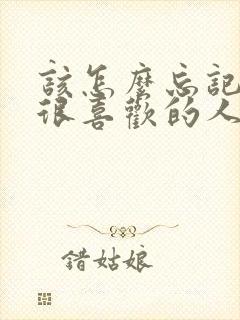 該怎麼忘記
很喜歡的人
錯姑娘